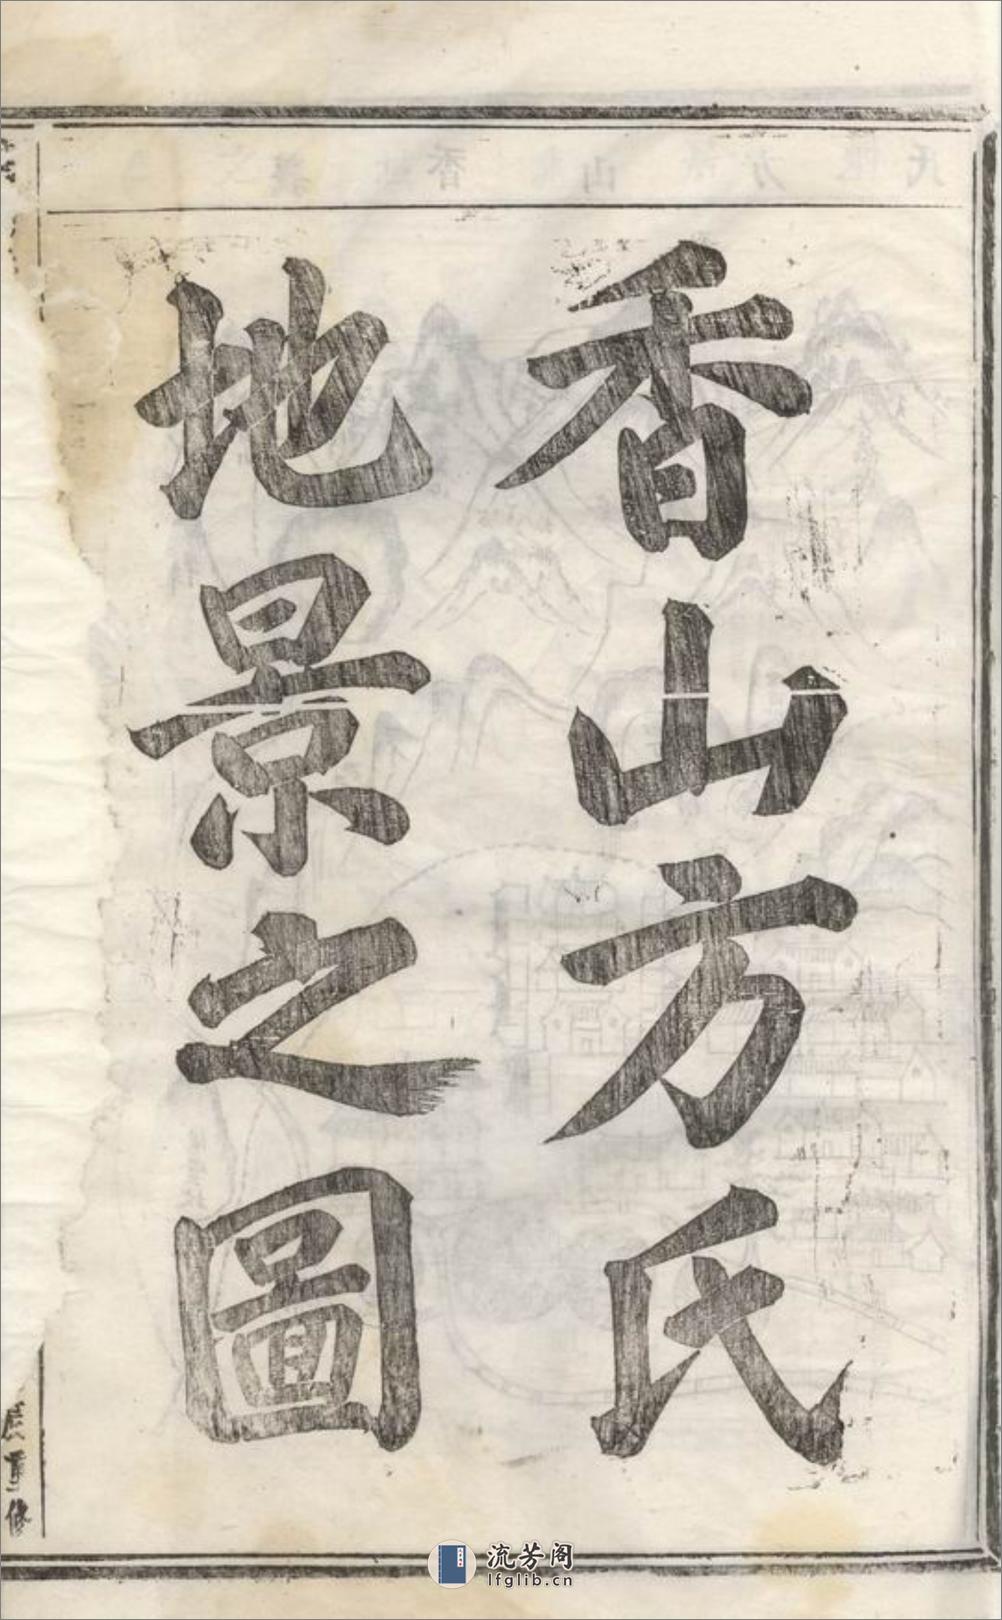 香山方氏
地景之圖
辰重修
流芳阁
lfglib.cn